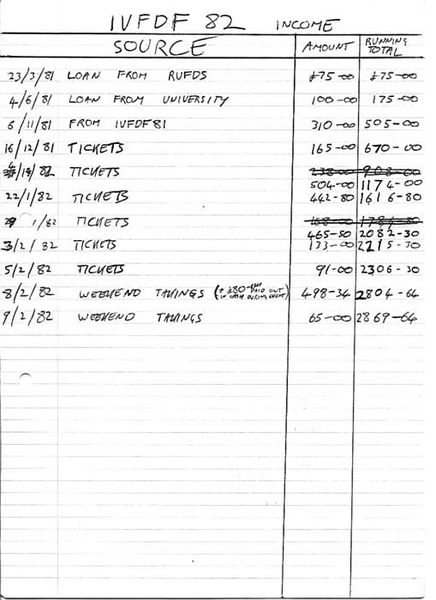 IVFDF 82 INCOME
SOURCE AMOUNT RUNNING TOTAL
23/3/81 LOAN FROM RUFDS £75-00 £75-00
4/6/81 LOAN FROM UNIVERSITY 100-00 175-00
6/11/81 FROM IVFDF81 310-00 505-00
16/12/81 TICKETS 165-00 670-00
/82 TICKETS 238-00 908-00
504-00 1174-00
22/1/82 TICKETS 442-80 1616-80
1/82 TICKETS 168-00 1784-80
465-50 2082-30
3/2/82 TICKETS 133-00 2215-30
5/2/82 TICKETS 91-00 2306-30
8/2/82 WEEKEND TAKINGS (+ £80- PAID OUT IN CASH DURING EVENT) 498-34 2804-64
9/2/82 WEEKEND TAKINGS 65-00 2869-64